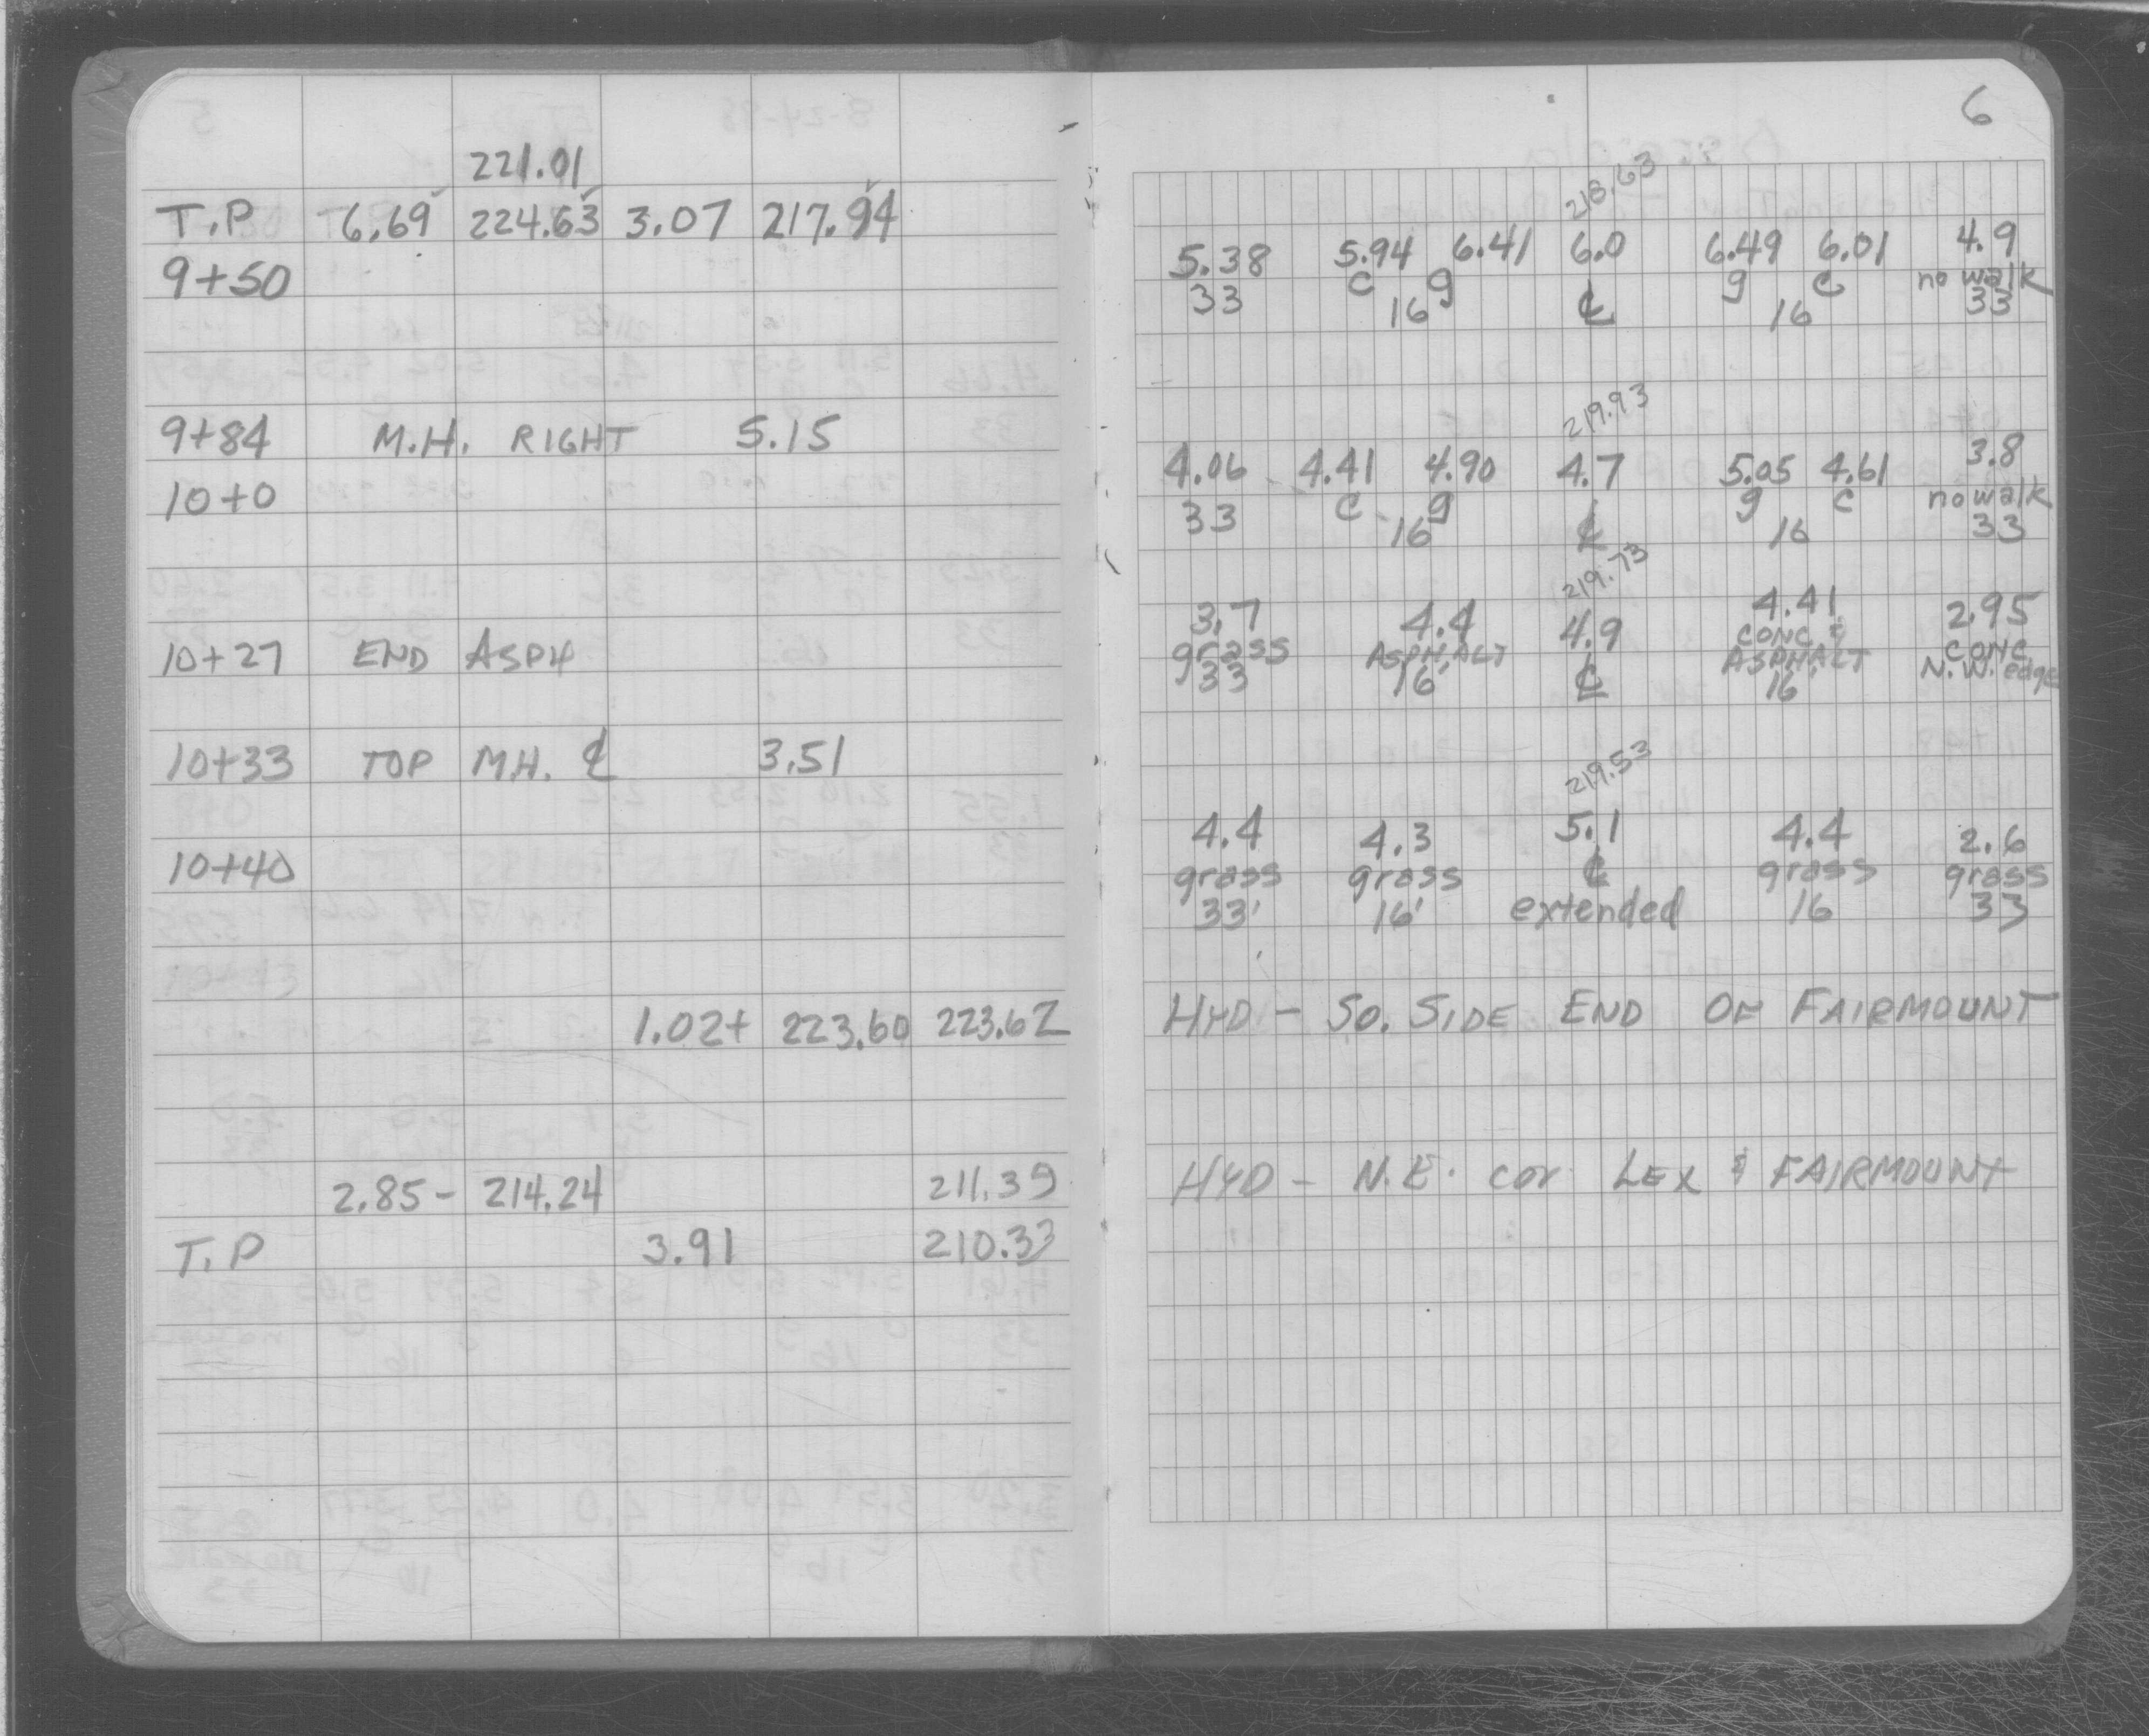 221.01
T.P 6.69 224.63 3.07 217.94
9+50
9+84 M.H. RIGHT 5.15
10+0
10+27 END ASPH
10+33 TOP M.H. ℄ 3.51
10+40
1.02+ 223.60 223.62
2.85- 214.24 211.39
T.P 3.91 210.33
6
218.63
5.38 5.94 6.41 6.0 6.49 6.01 4.9
33 C g ℄ g C no walk
16 16 33
219.93
4.06 4.41 4.90 4.7 5.05 4.61 3.8
33 C g ℄ g C no walk
16 16 33
219.73
3.7 4.4 4.9 4.41 2.95
grass ASPHALT ℄ CONC & ASPHALT CONC
33 16' 16' N.W. edge
219.53
4.4 4.3 5.1 4.4 2.6
grass grass ℄ grass grass
33' 16' extended 16 33
HYD - SO. SIDE END OF FAIRMOUNT
HYD - N.E. cor LEX & FAIRMOUNT